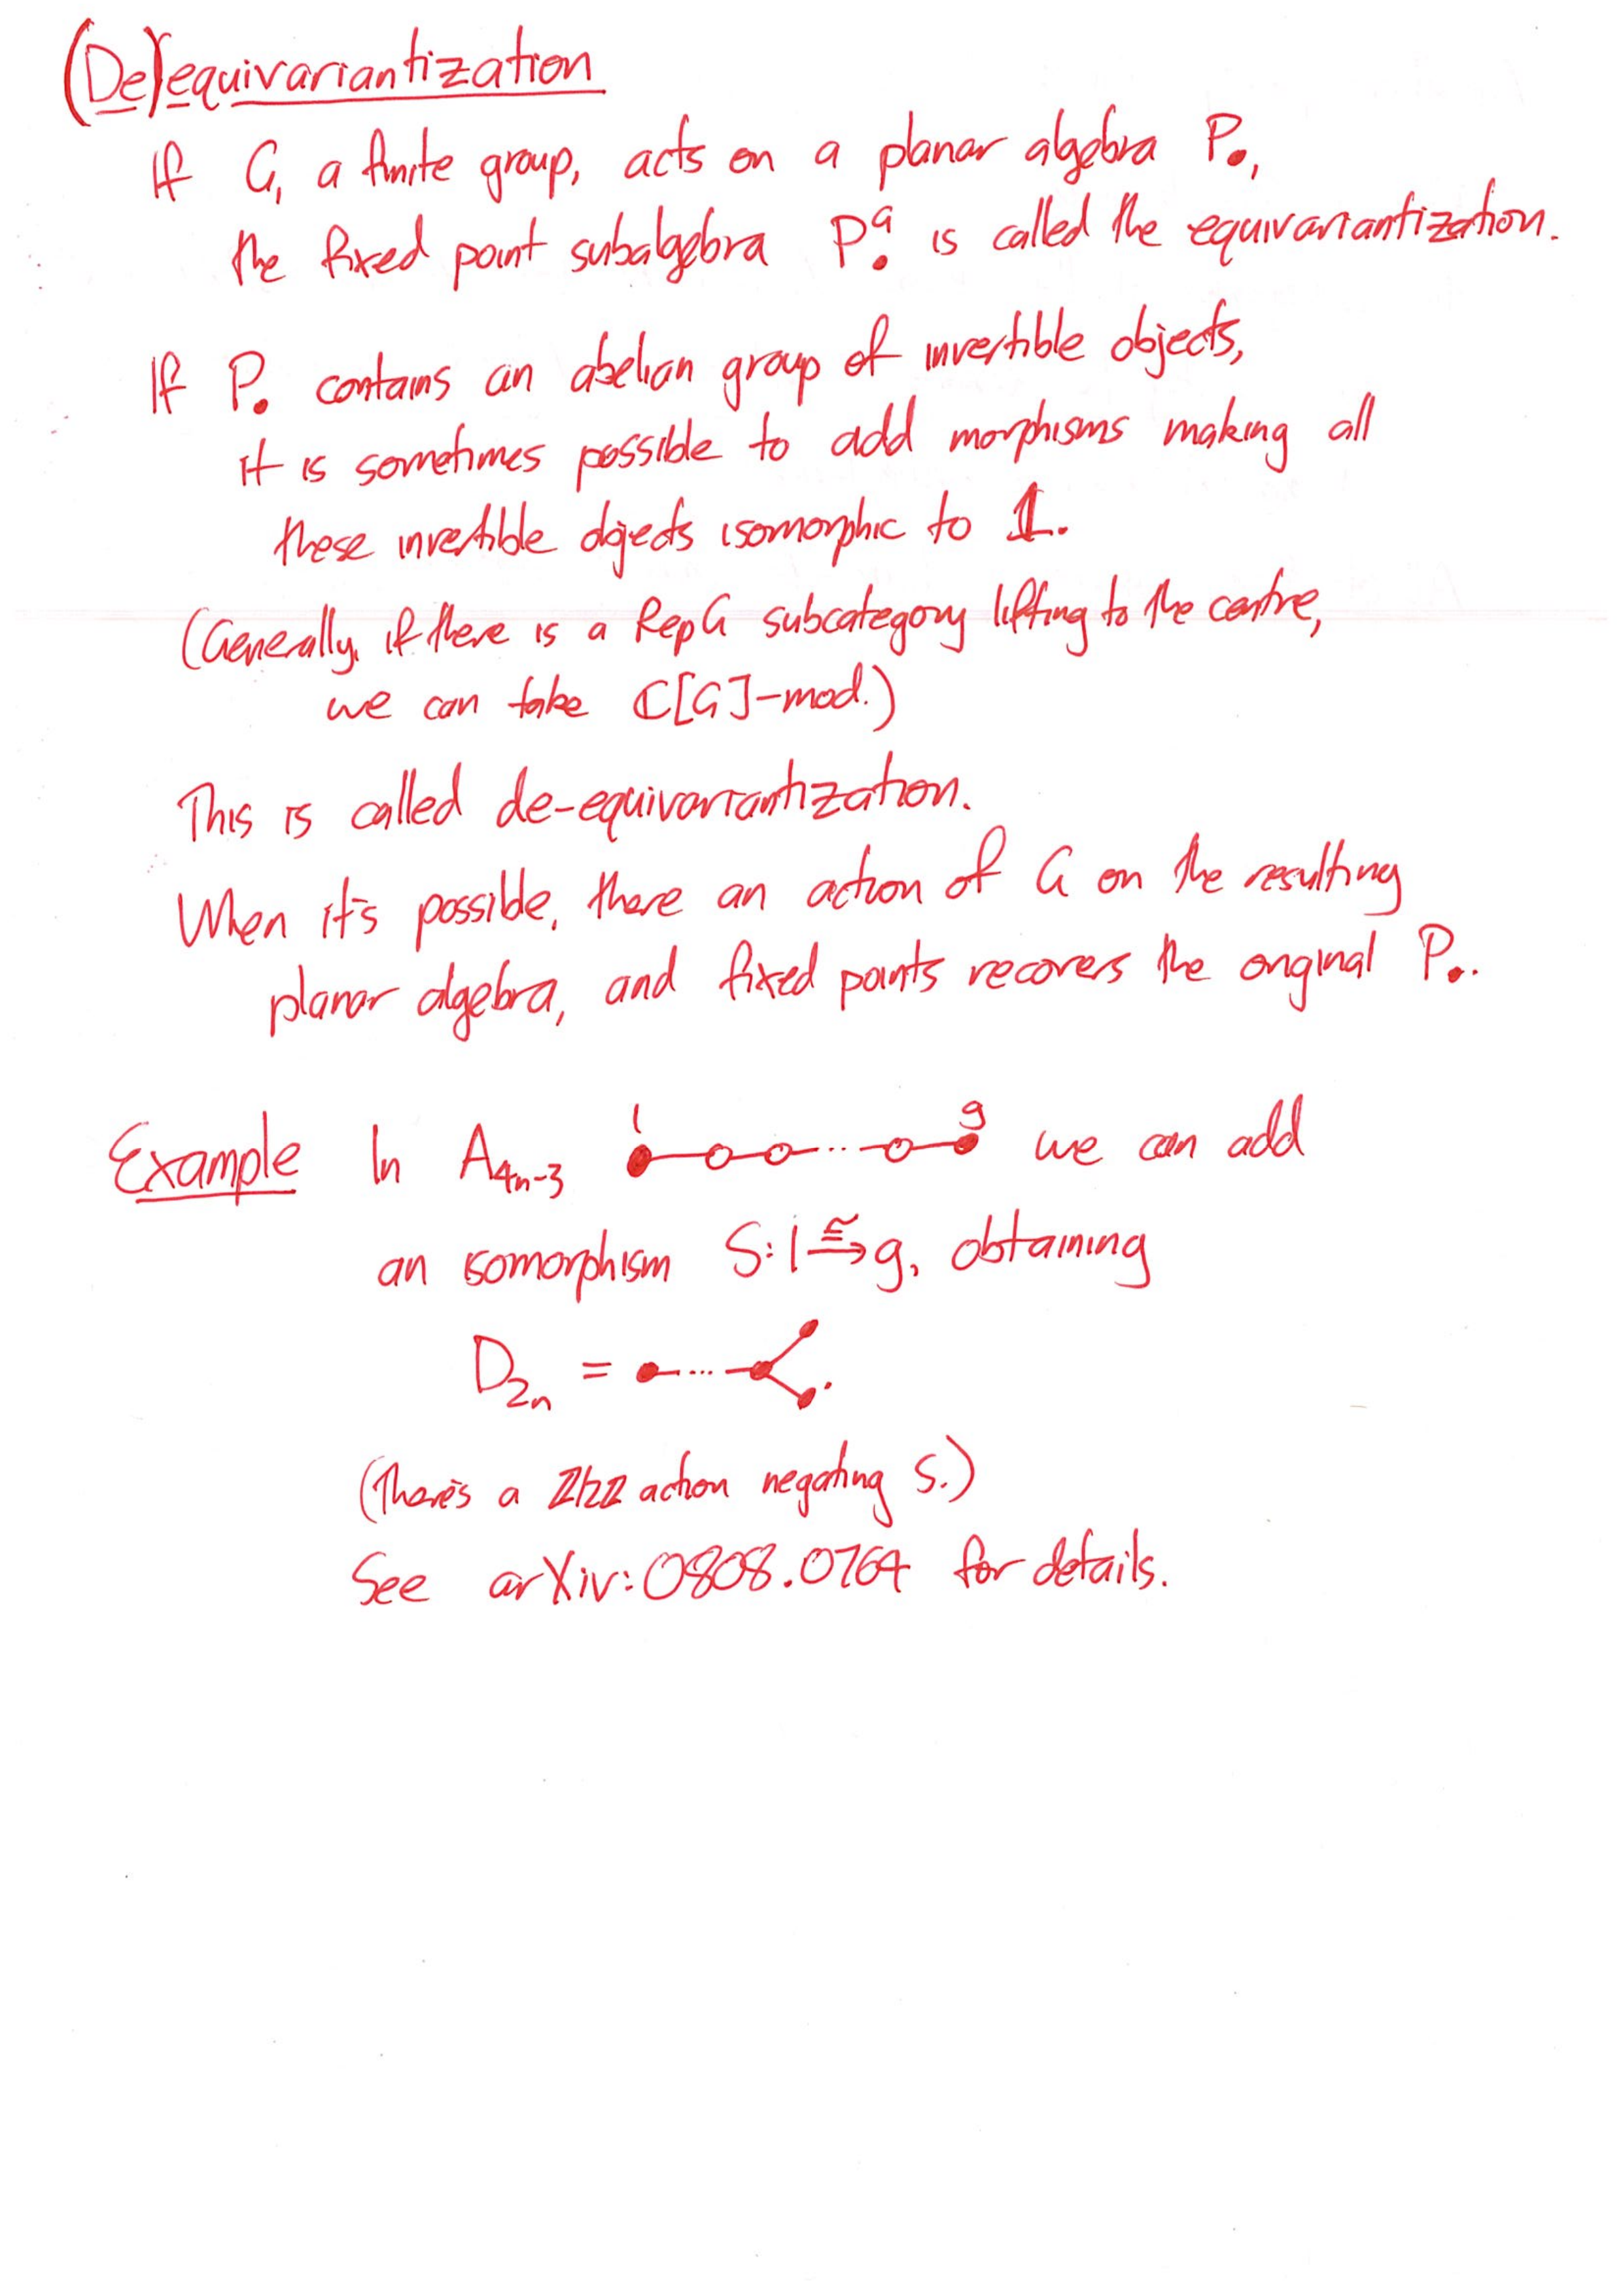 (De)equivariantization
If G, a finite group, acts on a planar algebra P•,
the fixed point subalgebra P•^G is called the equivariantization.
If P• contains an abelian group of invertible objects,
it is sometimes possible to add morphisms making all
these invertible objects isomorphic to 1.
(Generally, if there is a Rep G subcategory lifting to the centre,
we can take ℂ[G]-mod.)
This is called de-equivariantization.
When it's possible, there an action of G on the resulting
planar algebra, and fixed points recovers the original P•.
Example In A_{4n-3} 1 ... g we can add
an isomorphism S: 1 ≅→ g, obtaining
D_{2n} = ... .
(There's a ℤ/2ℤ action negating S.)
See arXiv:0808.0764 for details.